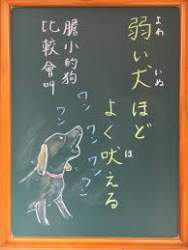 弱い犬ほど
よわ
いぬ
よく吠える
ほ
膽小的狗
比較會叫
ワン
ワン
ワン
ワン
ワン